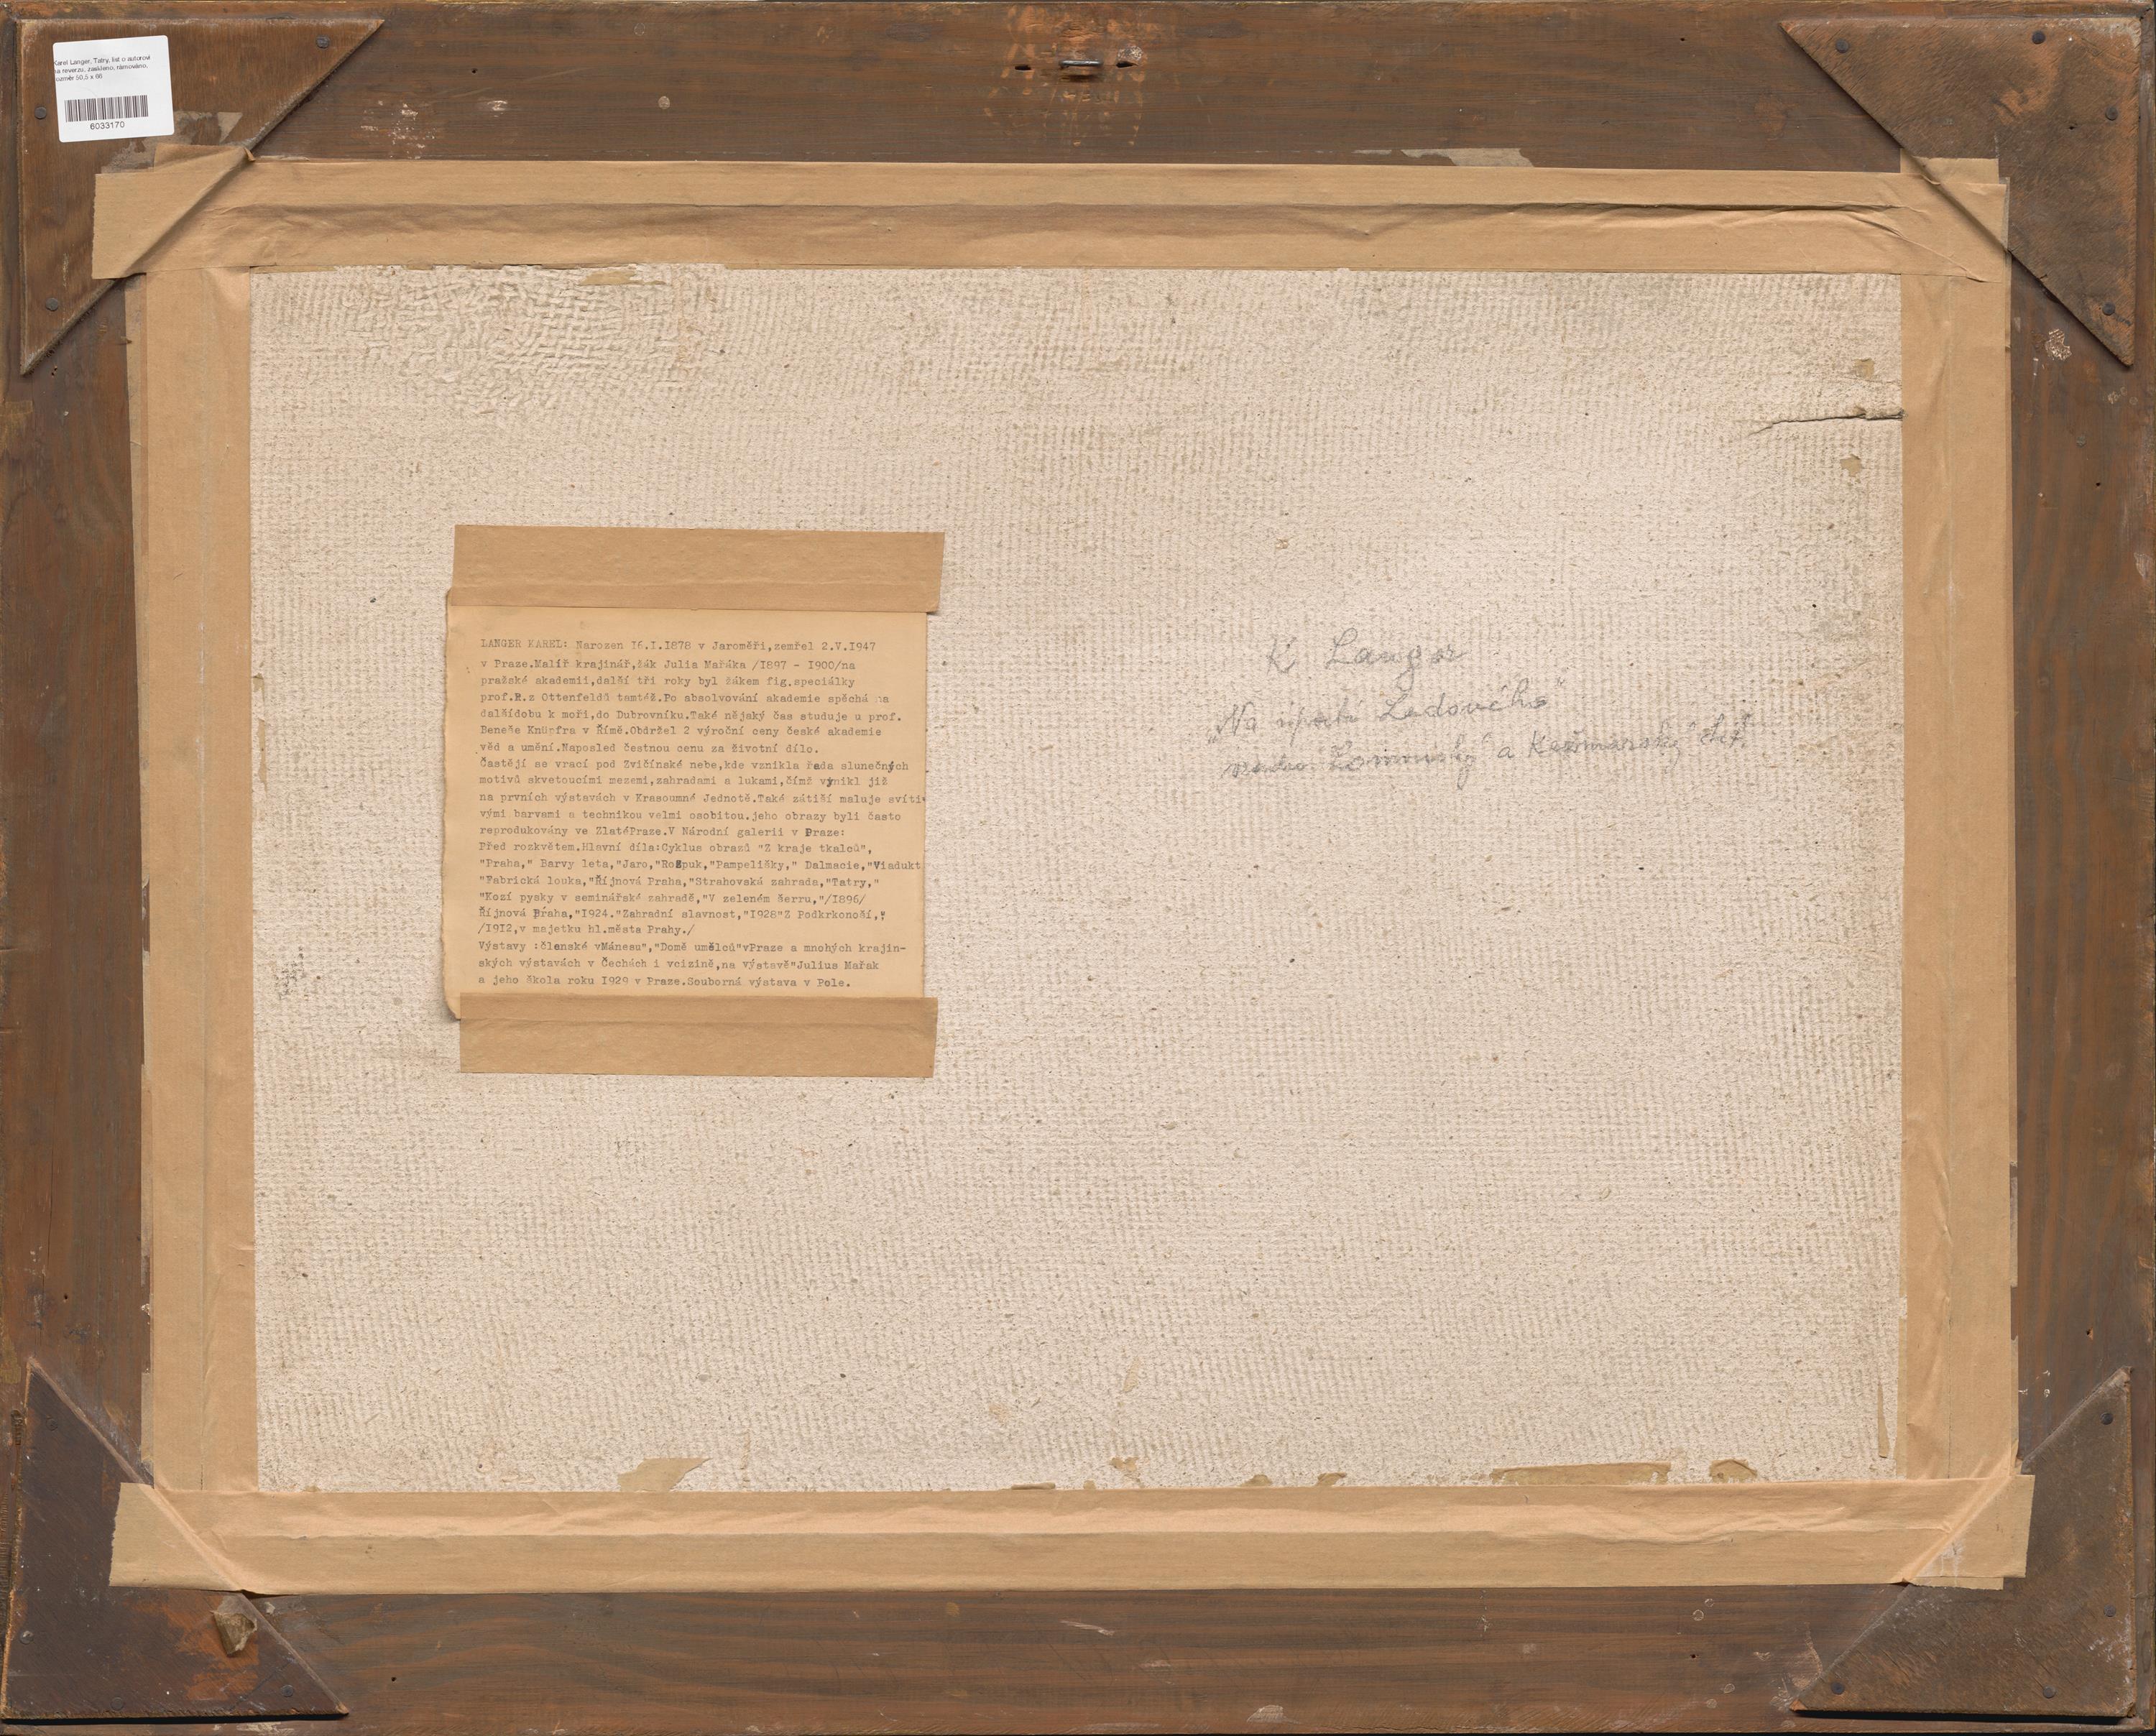 Karel Langer, Tatry, list o autorovi
na reverzu, zaskleno, rámováno,
rozměr 50,5 x 66
6033170
LANGER KAREL: Narozen I6.I.I878 v Jaroměři,zemřel 2.V.I947
v Praze.Malíř krajinář,žák Julia Mařáka /I897 - I900/na
pražské akademii,další tři roky byl žákem fig.speciálky
prof.R.z Ottenfeldů tamtéž.Po absolvování akademie spěchá na
dalšídobu k moři,do Dubrovníku.Také nějaký čas studuje u prof.
Beneše Knüpfra v Římě.Obdržel 2 výroční ceny české akademie
věd a umění.Naposled čestnou cenu za životní dílo.
Častějí se vrací pod Zvičínské nebe,kde vznikla řada slunečných
motivů skvetoucími mezemi,zahradami a lukami,čímž vynikl již
na prvních výstavách v Krasoumné Jednotě.Také zátiší maluje svíti
vými barvami a technikou velmi osobitou.jeho obrazy byli často
reprodukovány ve ZlatéPraze.V Národní galerii v Praze:
Před rozkvětem.Hlavní díla:Cyklus obrazů "Z kraje tkalců",
"Praha," Barvy leta,"Jaro,"Rozpuk,"Pampelišky," Dalmacie,"Viadukt
"Fabrická louka,"Říjnová Praha,"Strahovská zahrada,"Tatry,"
"Kozí pysky v seminářské zahradě,"V zeleném šerru,"/I896/
Říjnová Praha,"I924."Zahradní slavnost,"I928"Z Podkrkonoší,"
/I9I2,v majetku hl.města Prahy./
Výstavy :členské vMánesu","Domě umělců"vPraze a mnohých krajin-
ských výstavách v Čechách i vcizině,na výstavě"Julius Mařak
a jeho škola roku I929 v Praze.Souborná výstava v Pole.
K Langer
„Na úpatí Ledového"
Lomnický a Kežmarský štít.